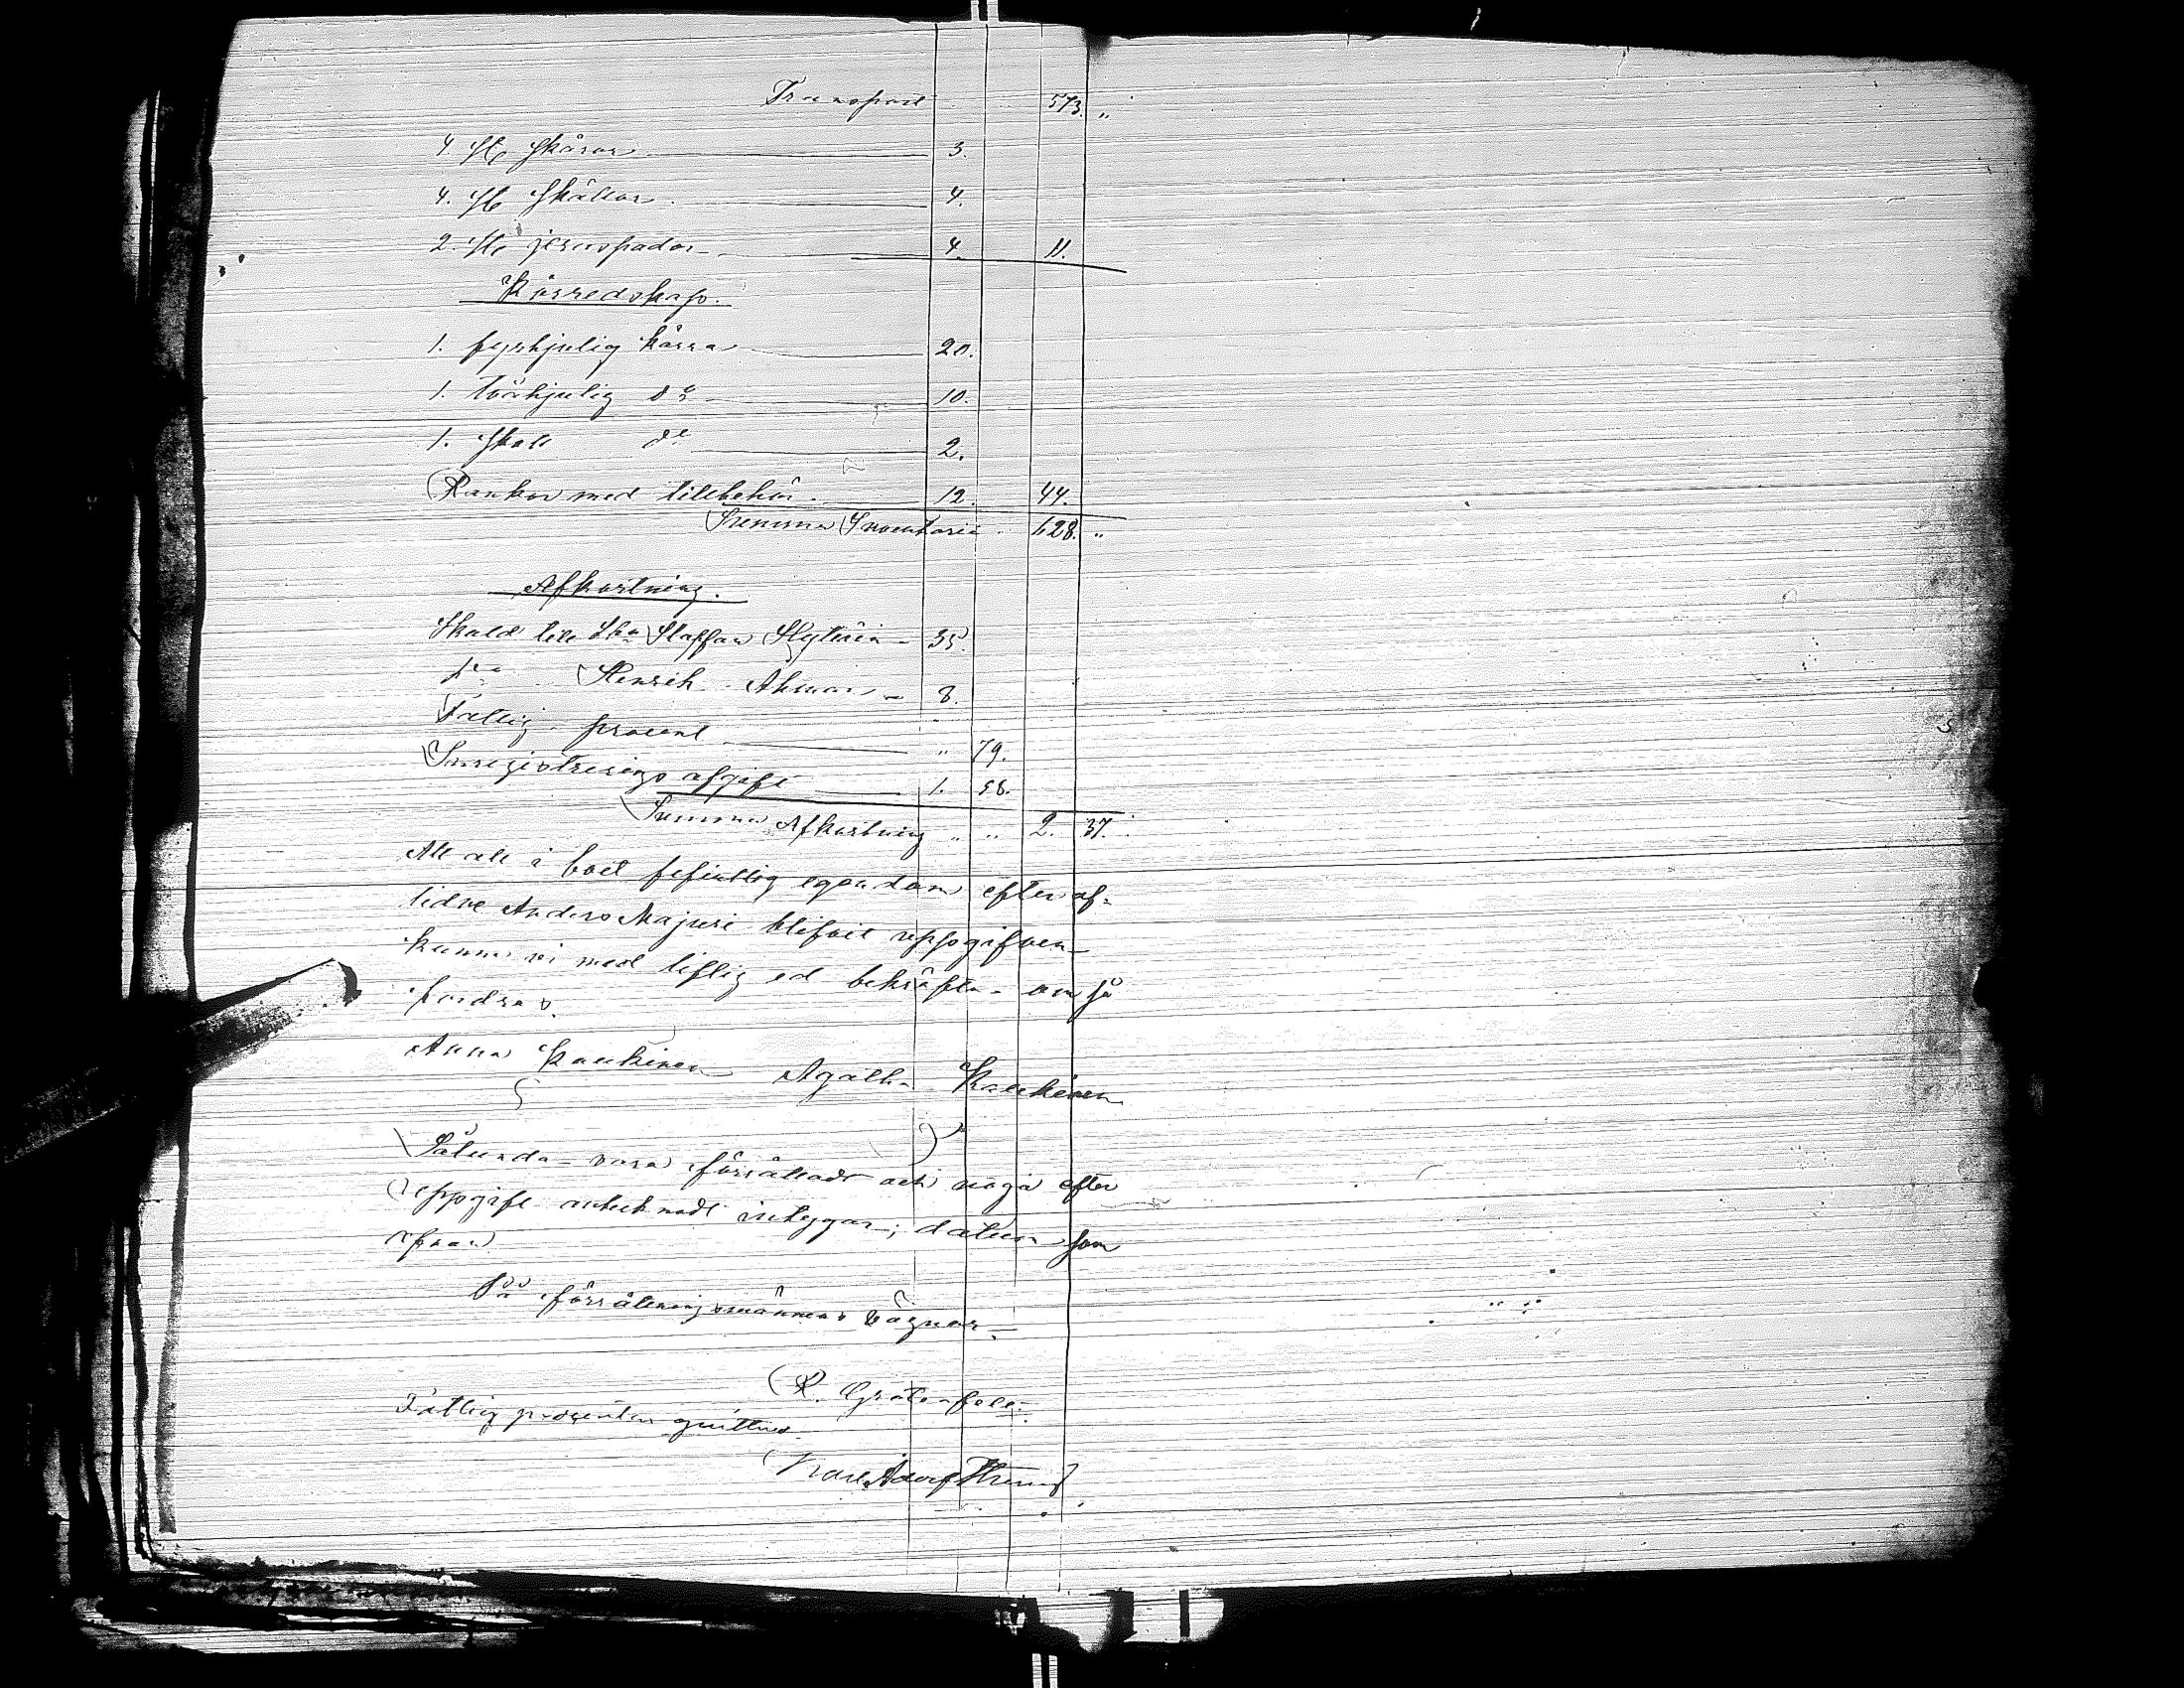 Transport 573. "
4 St. skäror 3.
4. St. skällor. 4.
2. St. jernspador 4. 11.
Körredskap.
1. fyrhjulig kärra 20.
1. tvåhjulig do 10.
1. skott do 2.
Rankor med tillbehör. 12. 44.
Summa Inventarie. 628. "
Afkortning.
Skuld till Staffan 35.
Henrik 8.
Fattig procent " 79.
Inregistrerings afgift 1. 58.
Summa Afkortning " " 2. 37.
Att allt i boet befintlig egendom efter af-
lidne Anders Majuri blifvit uppgifven
kunna vi med liflig ed bekräfta om så
fordras.
Anna Kaukinen Agatha Kaukinen
Sålunda vara förrättadt och noga efter
uppgift antecknadt intygar; datum som
ofvan
På förrättningsmännens vägnar
R. Grotenfelt.
Fattig procenten quitteras